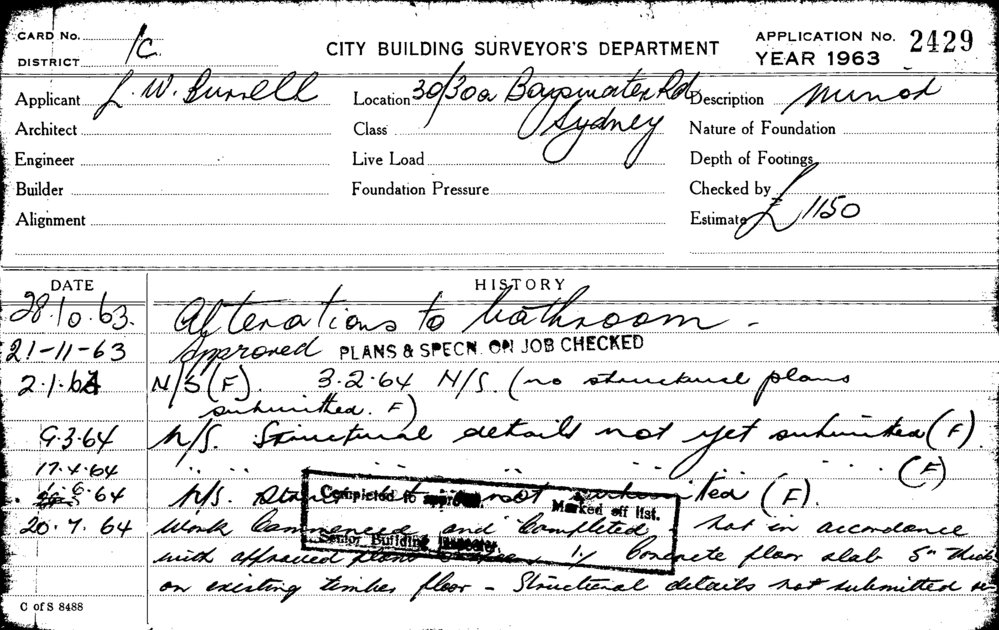 CARD No. 1C.
DISTRICT
CITY BUILDING SURVEYOR'S DEPARTMENT
APPLICATION No. 2429
YEAR 1963
Applicant L. W. Burrell
Location 30/30a Bayswater Rd
Sydney
Description minor
Architect
Class
Nature of Foundation
Engineer
Live Load
Depth of Footings
Builder
Foundation Pressure
Checked by
Alignment
Estimate £1150
DATE HISTORY
28.10.63. Alterations to bathroom -
21-11-63 Approved PLANS & SPECN. ON JOB CHECKED
2.1.64 N/S (F). 3.2.64 N/S. (no structural plans
submitted. F)
9.3.64 N/S. Structural details not yet submitted (F).
17.4.64 " " " " " " " (F)
6.64 N/S. not submitted (F).
Completed to approval. Marked off list.
Senior Building Inspector.
20.7.64 Work Commenced and Completed not in accordance
with approved plans 1/ Concrete floor slab 5" thick
on existing timber floor - Structural details not submitted
C of S 8488